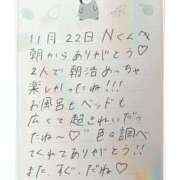 11月22日 Nくんへ
朝からありがとう♡
2人で朝活めっちゃ
楽しかったね♡
お風呂もベッドも
広くて超きれいだっ
たね〜♡色々調べ
てくれてありがとう♡
またすぐ、だね♡